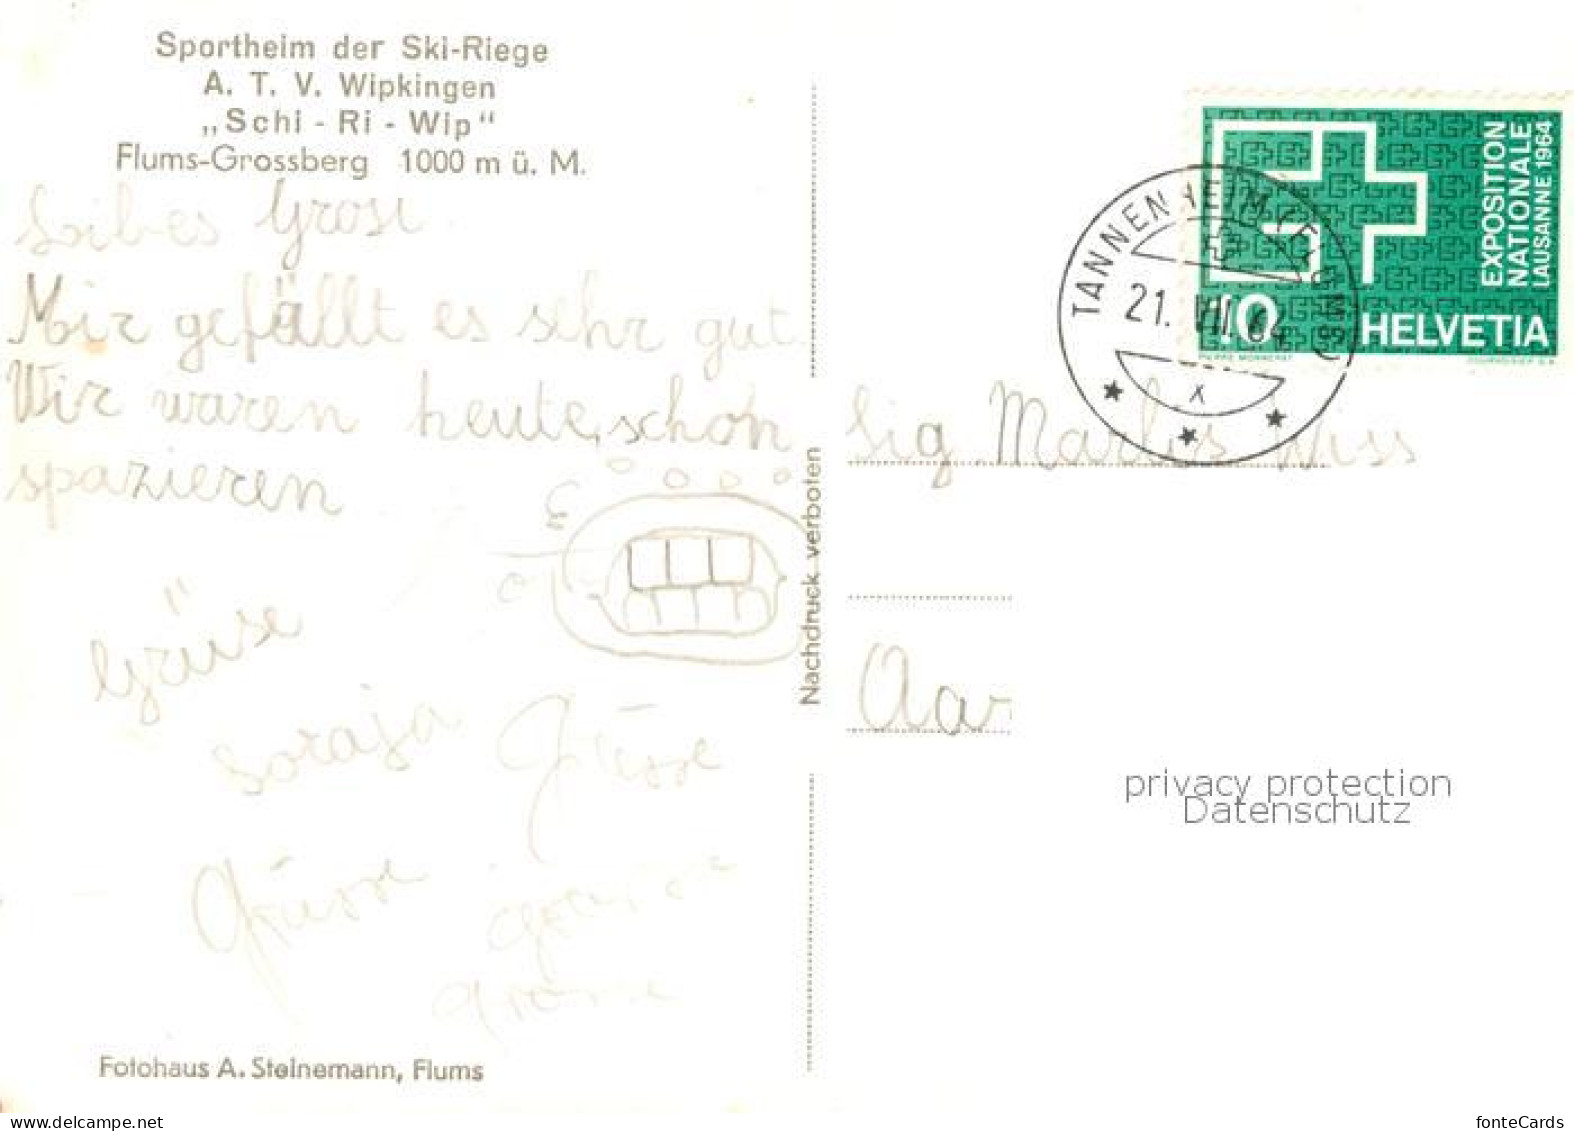 Sportheim der Ski-Riege
A. T. V. Wipkingen
„Schi - Ri - Wip“
Flums-Grossberg 1000 m ü. M.
Leibes Grosi
Mir gefällt es sehr gut.
Wir waren heute schon
spazieren
Grüse
Soraja
Grüsse
Grüsse
Grüsse
Fotohaus A. Steinemann, Flums
Nachdruck verboten
EXPOSITION
NATIONALE
LAUSANNE 1964
10 HELVETIA
PIERRE MONNERAT
COURVOISIER S.A.
TANNENHEIM (FLUMS)
21. VII. 64
X
Sig. Marlis Wiss
Aar
privacy protection
Datenschutz
fonteCards
delcampe.net